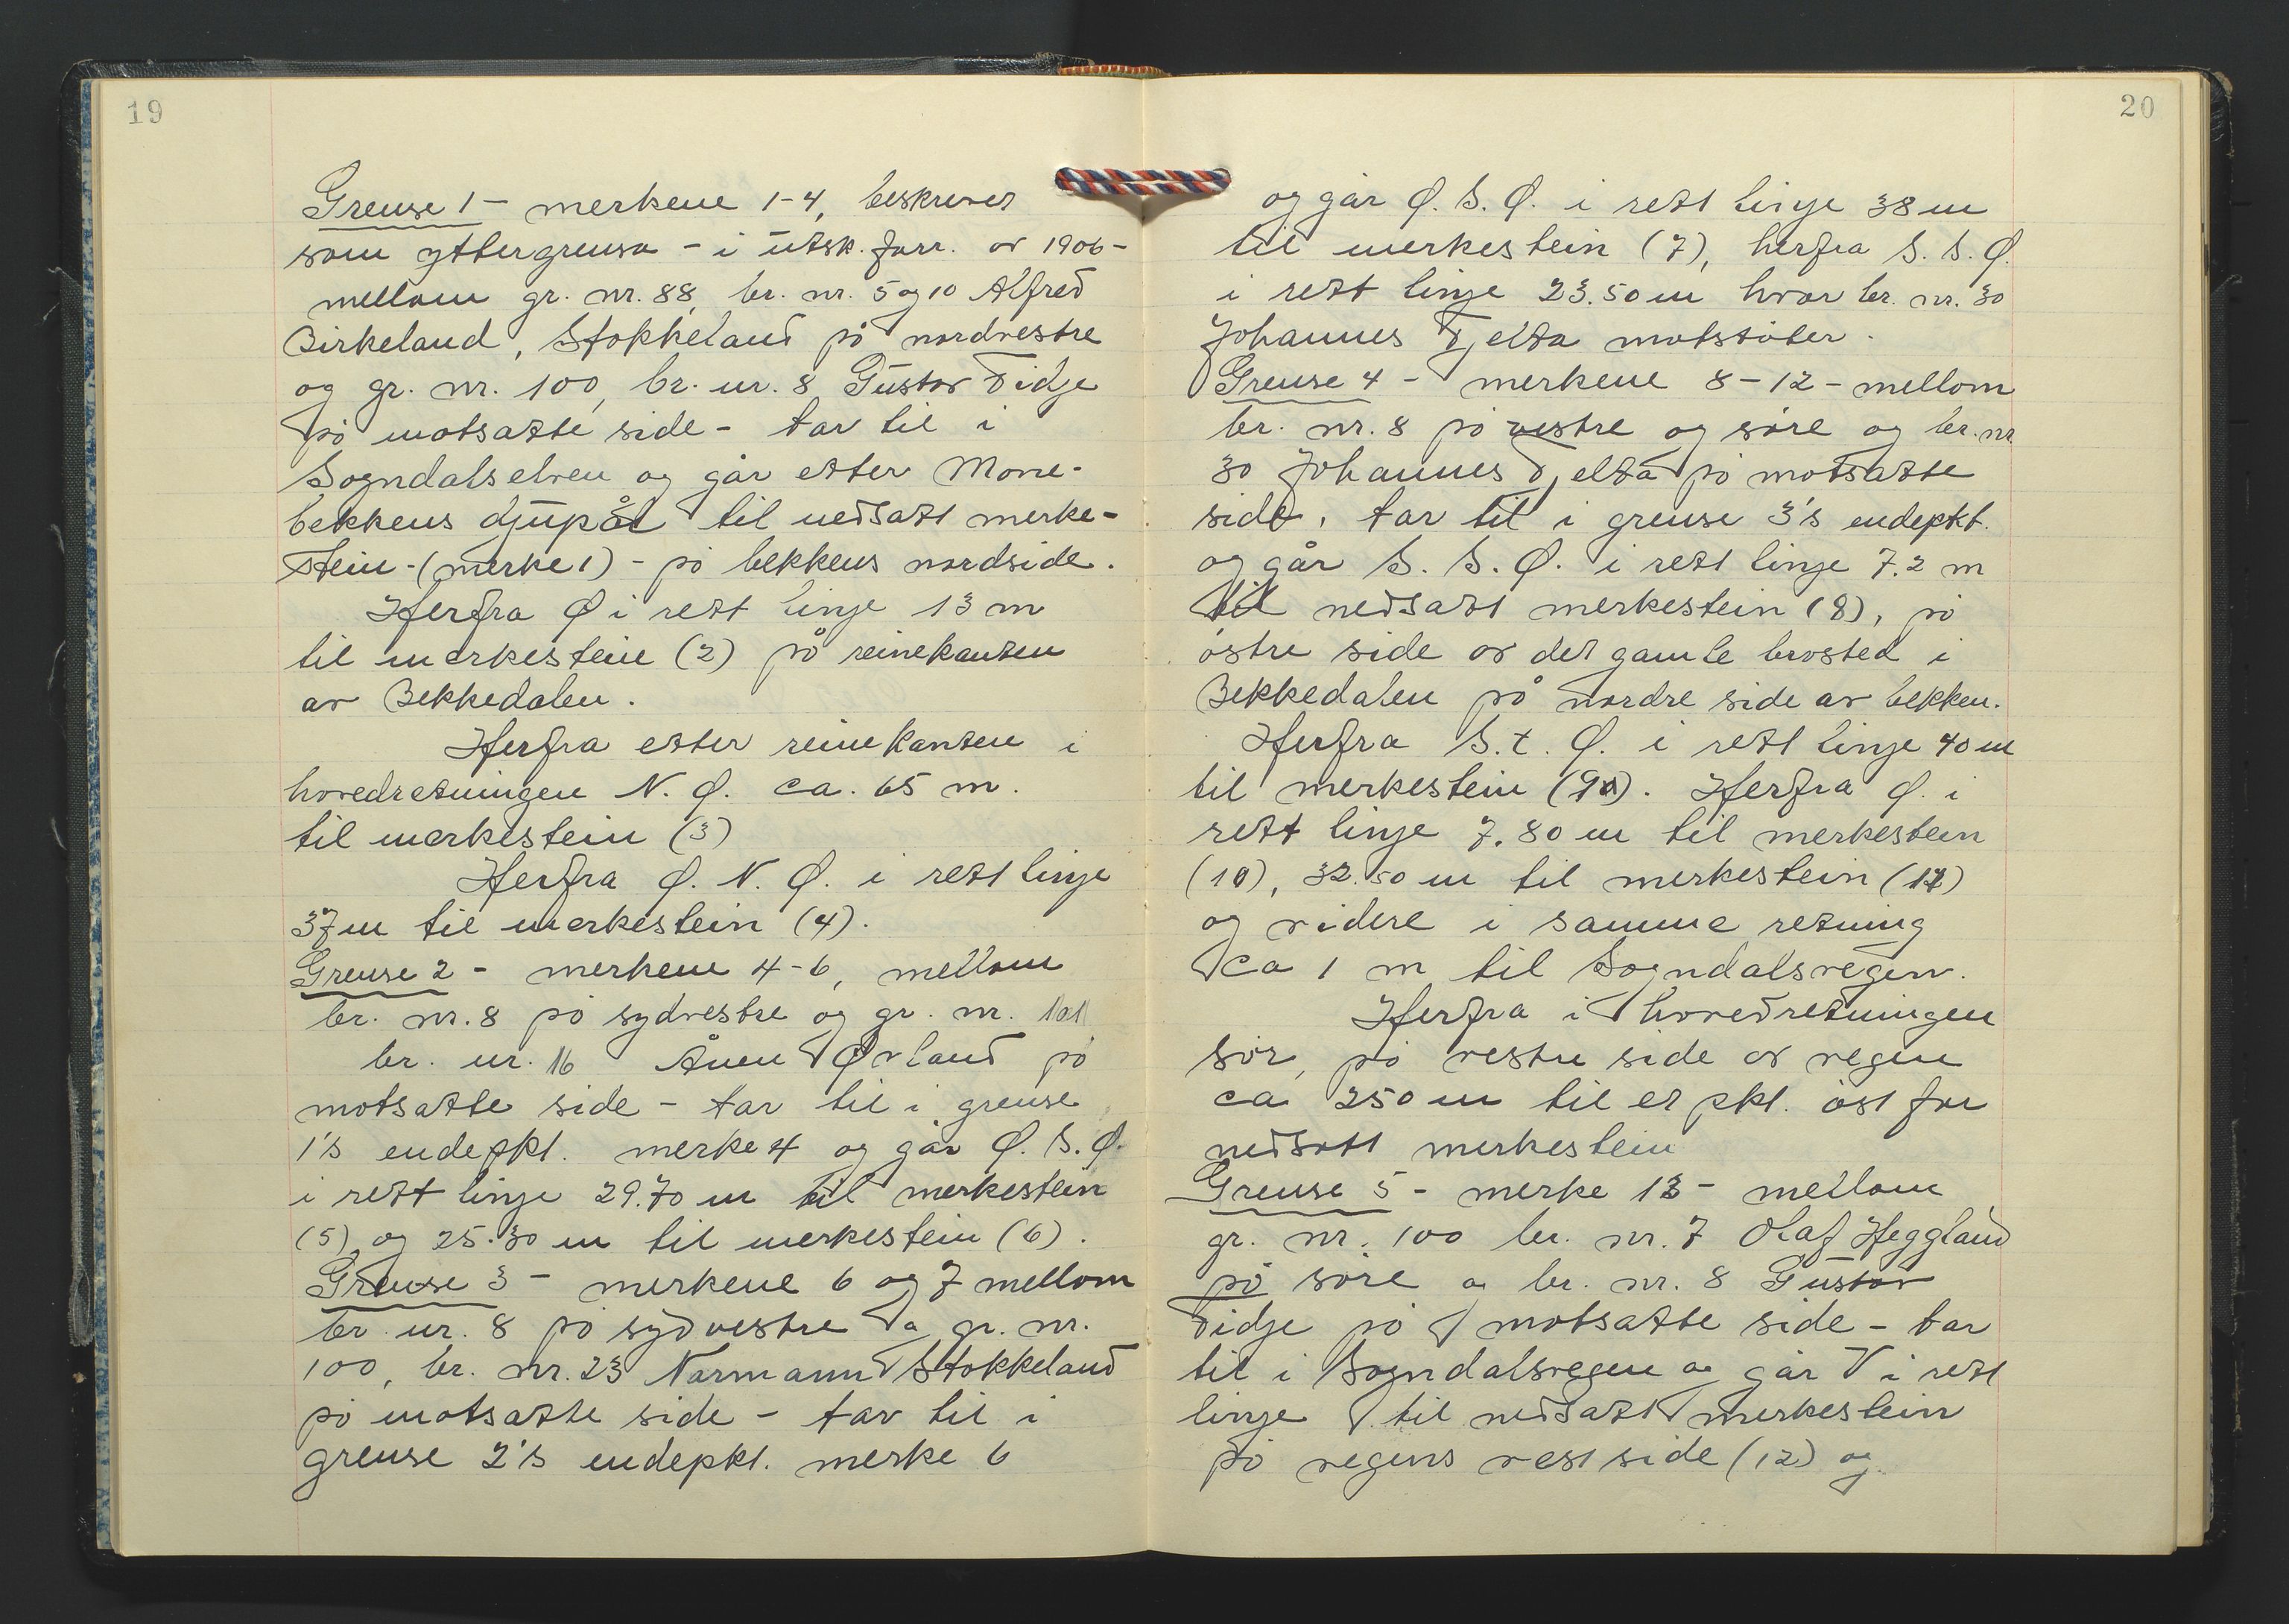 19
Grense 1 - merkene 1-4, beskrevet
som yttergrensa - i utsk. forr. av 1906 -
mellom gr. nr. 88, br. nr. 5 og 10 Alfred
Birkeland, Stokkeland på nordvestre
og gr. nr. 100, br. nr. 8 Gustav Tidje
på motsatte side - tar til i
Sogndalselven og går etter Mone-
bekkens djupål til nedsatt merke-
stein - (merke 1) - på bekkens nordside.
Herfra Ø i rett linje 13 m
til merkestein (2) på reinekanten
av Bekkedalen.
Herfra etter reinekanten i
hovedretningen N. Ø. ca. 65 m.
til merkestein (3)
Herfra Ø. N. Ø. i rett linje
37 m til merkestein (4).
Grense 2 - merkene 4-6, mellom
br. nr. 8 på sydvestre og gr. nr. 101
br. nr. 16 Ånen Ørland på
motsatte side - tar til i grense
1's endepkt. merke 4 og går Ø. S. Ø.
i rett linje 29.70 m til merkestein
(5), og 25.30 m til merkestein (6).
Grense 3 - merkene 6 og 7 mellom
br. nr. 8 på sydvestre og gr. nr.
100, br. nr. 23 Normann Stokkeland
på motsatte side - tar til i
grense 2's endepkt. merke 6
20
og går Ø. S. Ø. i rett linje 38 m
til merkestein (7), herfra S. S. Ø.
i rett linje 23.50 m hvor br. nr. 30
Johannes Tjelta motstøter.
Grense 4 - merkene 8-12 - mellom
br. nr. 8 på vestre og søre og br. nr.
30 Johannes Tjelta på motsatte
side, tar til i grense 3's endepkt.
og går S. S. Ø. i rett linje 7.2 m
til nedsatt merkestein (8), på
østre side av det gamle brosted i
Bekkedalen på nordre side av bekken.
Herfra S. t. Ø. i rett linje 40 m
til merkestein (9). Herfra Ø. i
rett linje 7.80 m til merkestein
(10), 32.50 m til merkestein (11)
og videre i samme retning
ca 1 m til Sogndalsvegen.
Herfra i hovedretningen
sør, på vestre side av vegen
ca 250 m til et pkt. øst for
nedsatt merkestein
Grense 5 - merke 13 - mellom
gr. nr. 100 br. nr. 7 Olaf Heggland
på søre og br. nr. 8 Gustav
Tidje på motsatte side - tar
til i Sogndalsvegen og går V i rett
linje til nedsatt merkestein
på vegens vestside (12) og